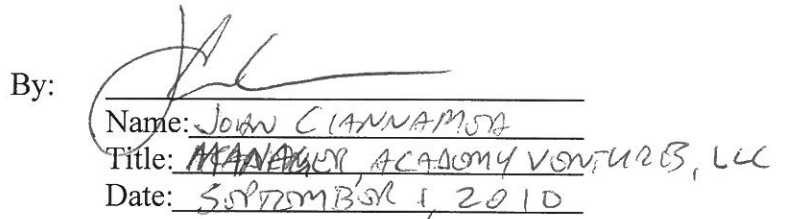 By:
Name: JOHN CIANNAMEA
Title: MANAGER, ACADEMY VENTURES, LLC
Date: SEPTEMBER 1, 2010